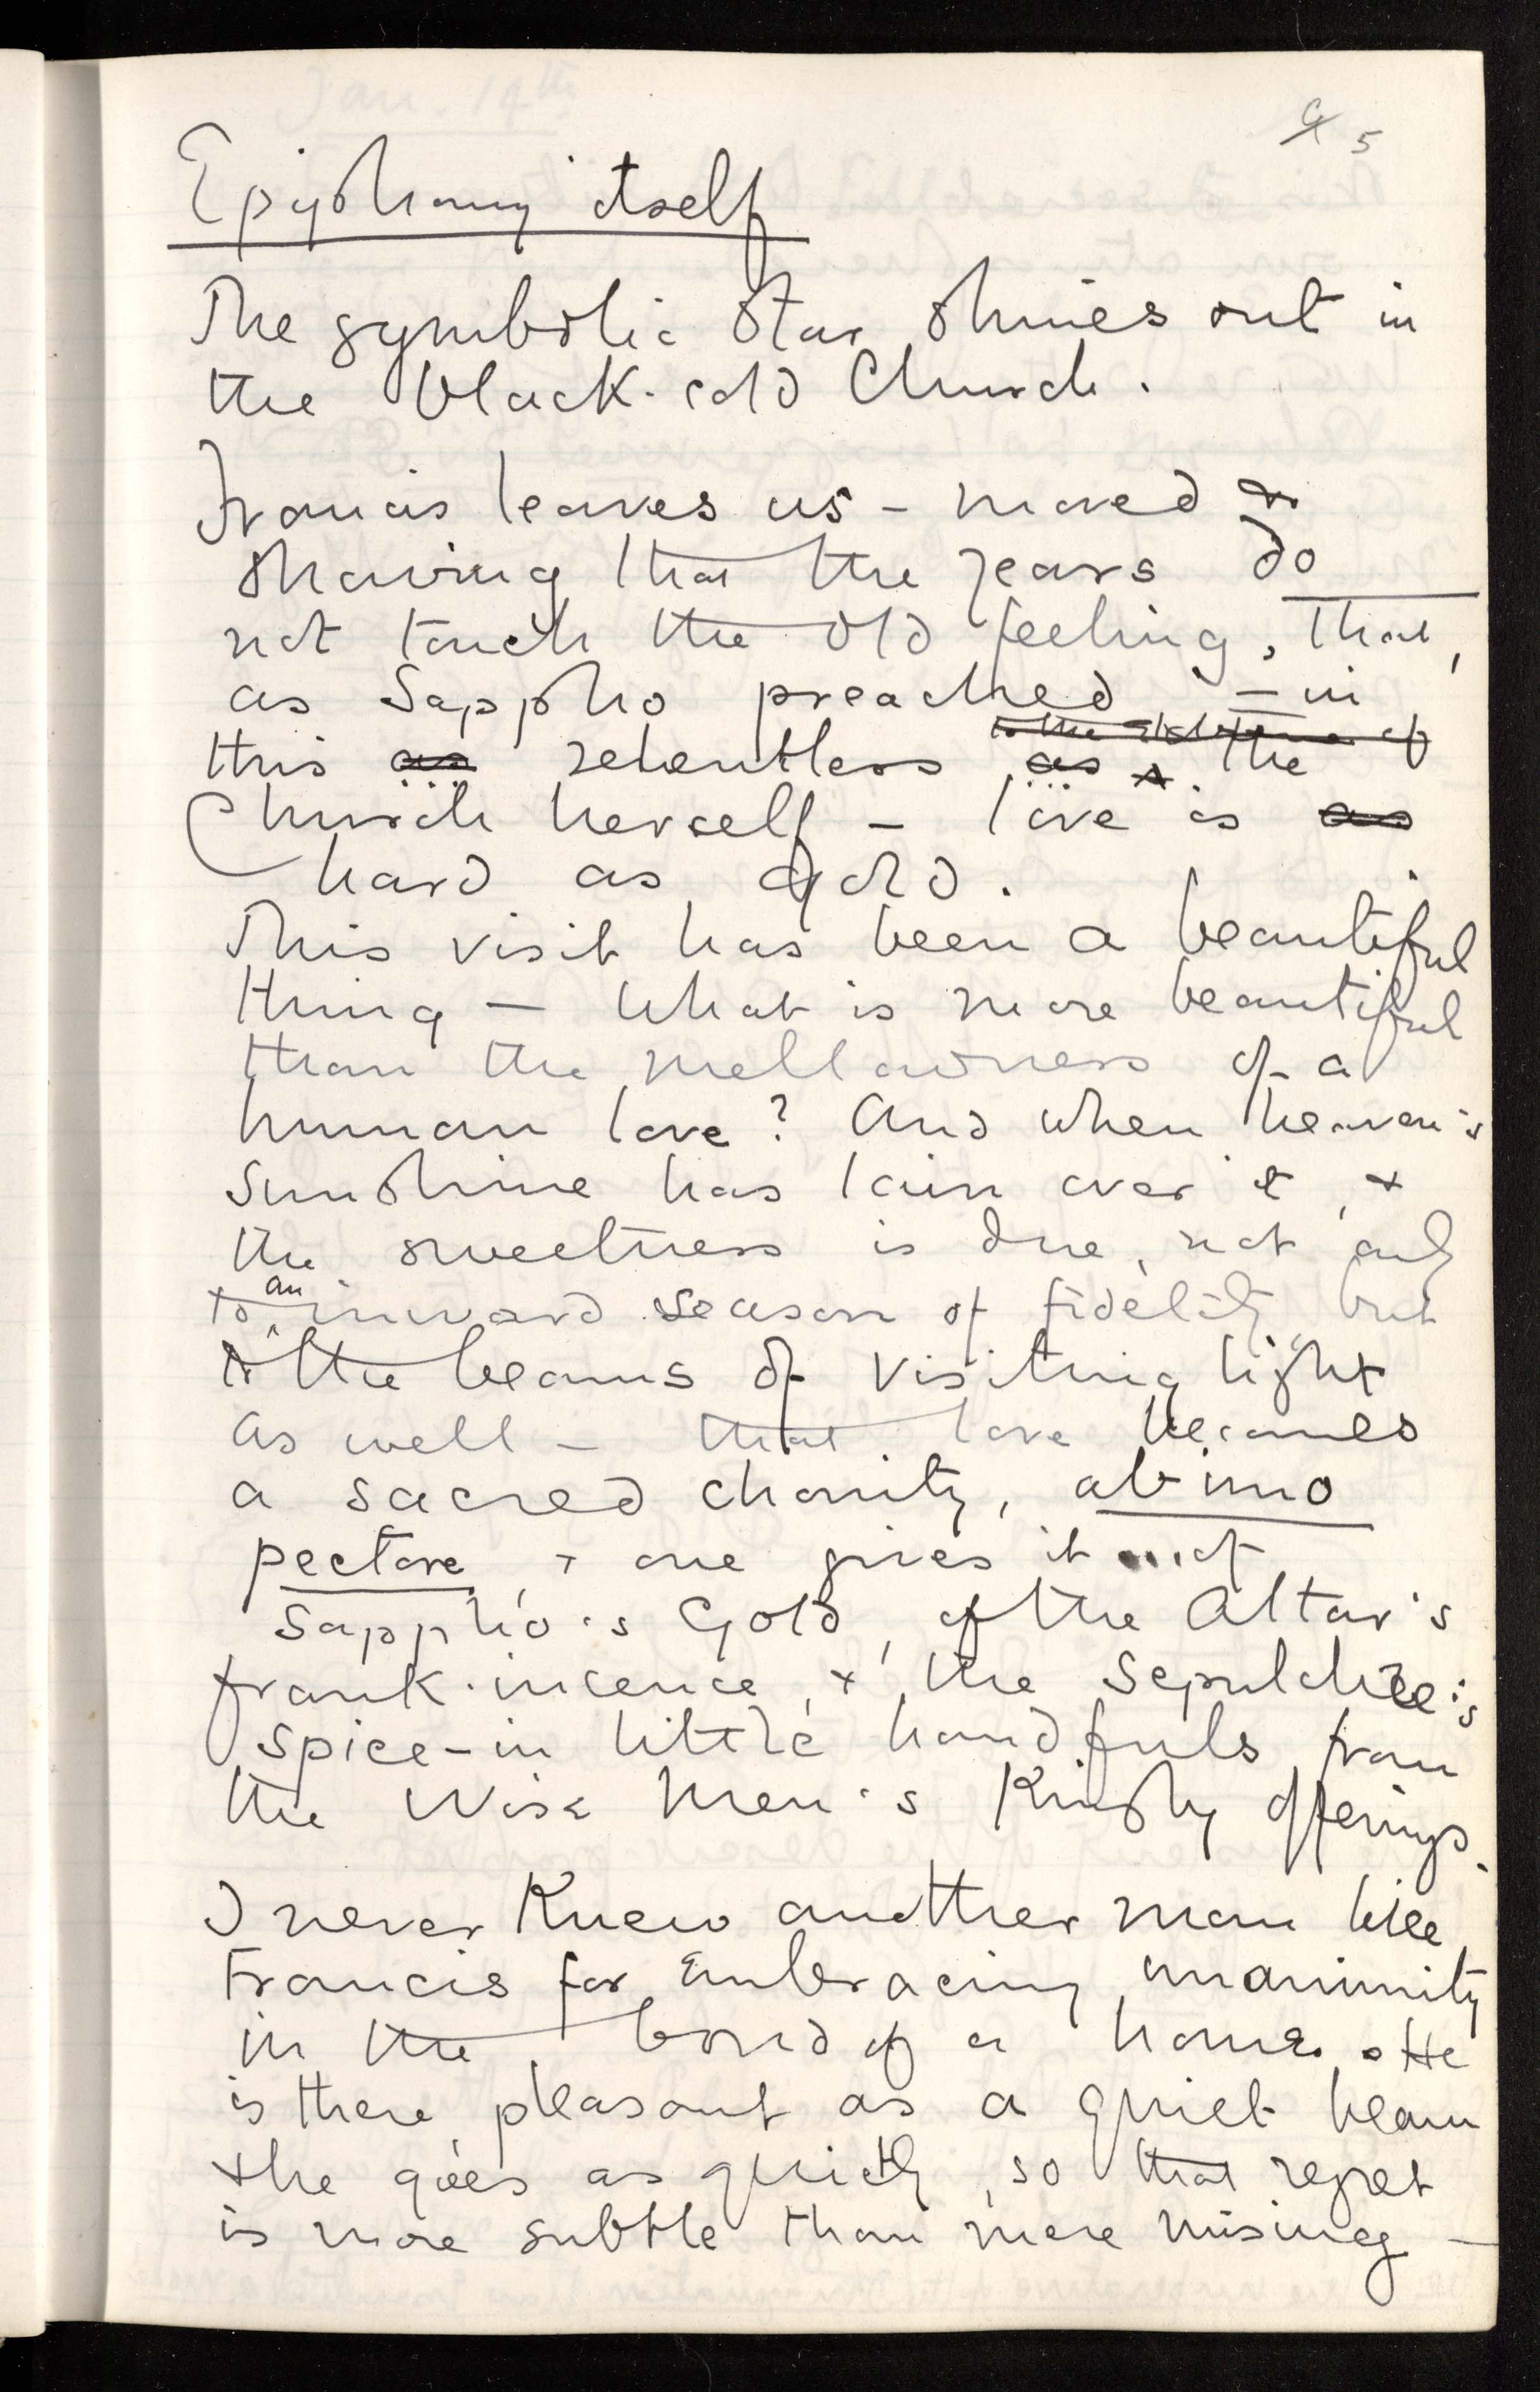 5
Epiphany itself
The symbolic Star shines out in
the black-cold Church.
Francis leaves us – moved &
showing that the years do
not touch the old feeling, that,
as Sappho preached – in
to the steadfastness of
this as relentless as the
Church herself – love is as
hard as gold.
This visit has been a beautiful
thing – What is more beautiful
than the mellowness of a
human love? And when heaven's
sunshine has lain over it, &
the sweetness is due, not only
to an inward season of fidelity but
to the beams of visiting light
as well – that love becomes
a sacred charity, ab imo
pectore, & one gives it of
Sappho's Gold, of the Altar's
frank-incence, & the Sepulchre's
spice – in little handfuls from
the Wise Men's Kingly offerings.
I never Knew another man like
Francis for embracing unanimity
in the bond of a home. He
is there pleasant as a quiet beam
& he goes as quietly, so that regret
is more subtle than mere missing –